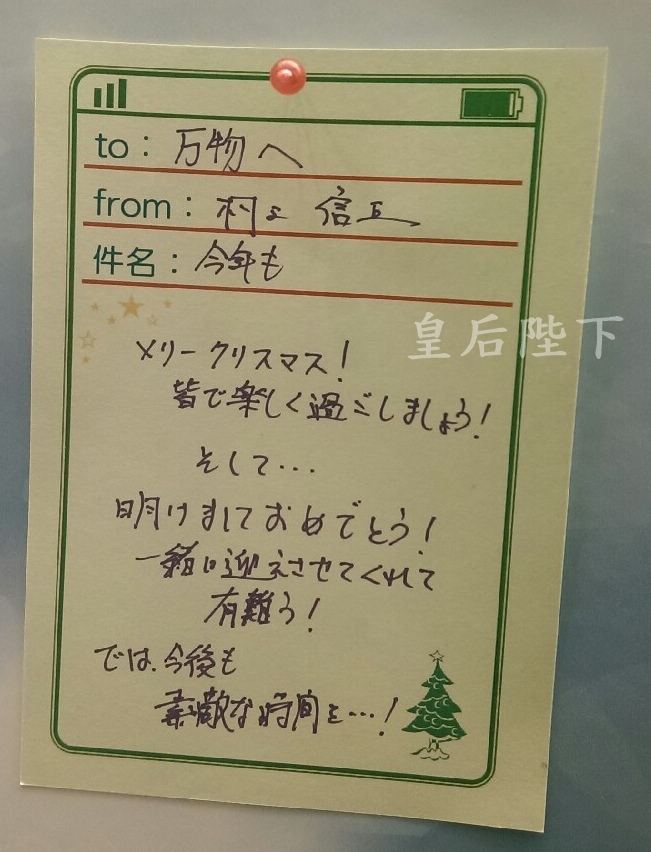 to： 万物へ
from： 村上 信五
件名： 今年も
皇后陛下
メリークリスマス！
皆で楽しく過ごしましょう！
そして…
明けましておめでとう！
一緒に迎えさせてくれて
有難う！
では、今後も
素敵な時間を…！